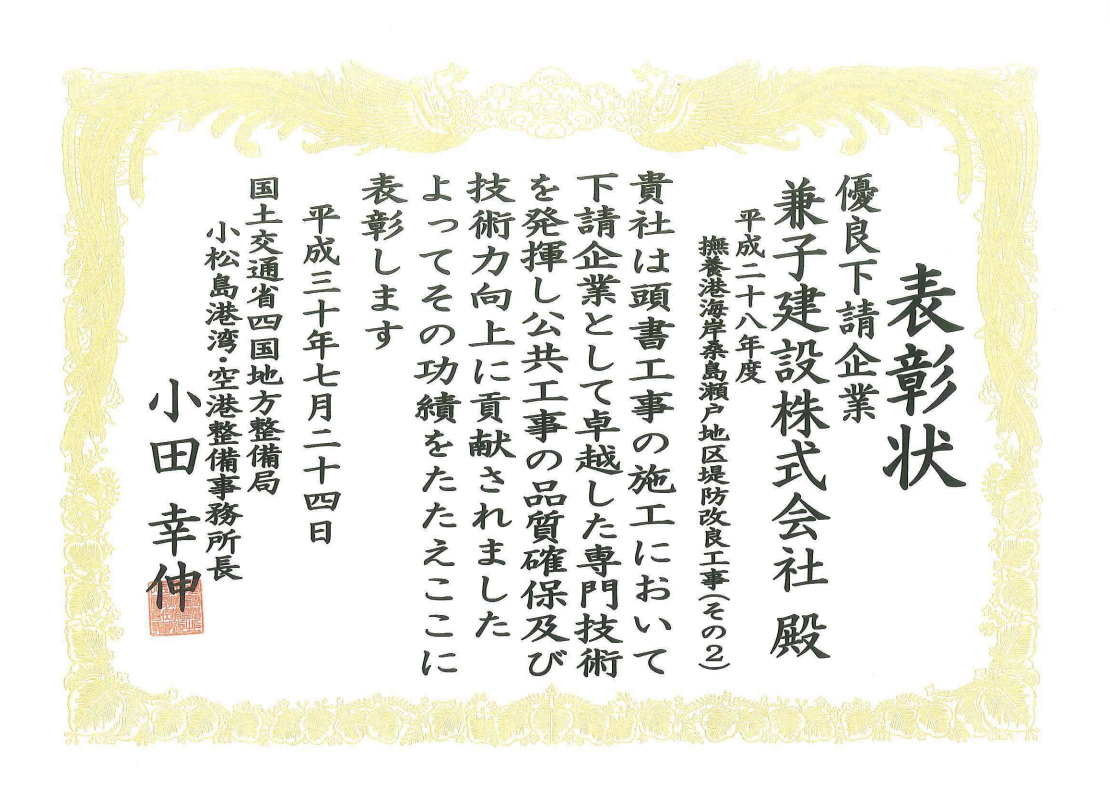 表彰状
優良下請企業
兼子建設株式会社 殿
平成二十八年度
撫養港海岸桑島瀬戸地区堤防改良工事(その2)
貴社は頭書工事の施工において
下請企業として卓越した専門技術
を発揮し公共工事の品質確保及び
技術力向上に貢献されました
よってその功績をたたえここに
表彰します
平成三十年七月二十四日
国土交通省四国地方整備局
小松島港湾・空港整備事務所長
小田 幸伸